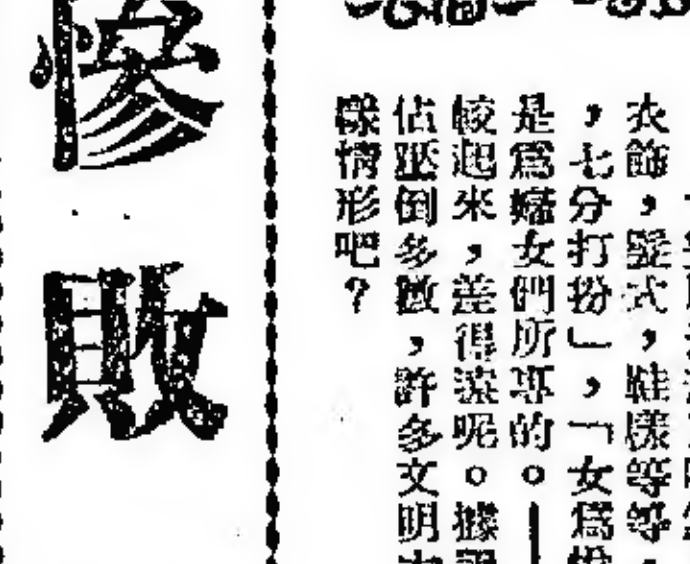 衣飾，髮式，鞋樣等等，
，七分打扮」，「女爲悅
是爲嬌女們所專的。
較起來，差得遠呢。據
佔壓倒多數，許多文明
樣情形吧？
慘敗